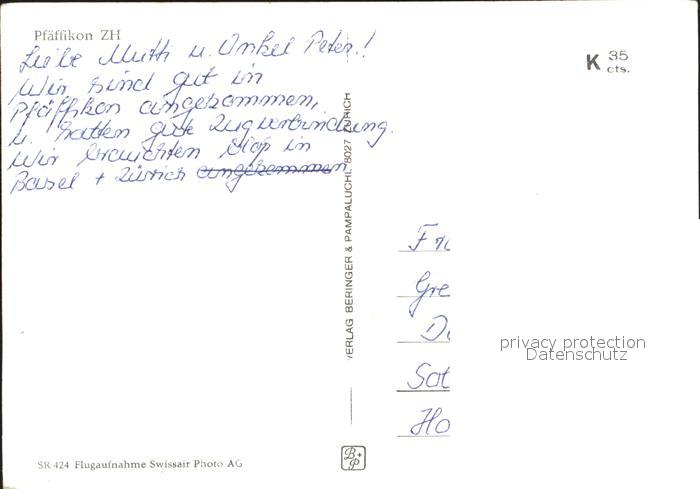 Pfäffikon ZH
Liebe Mutti u. Onkel Peter!
Wir sind gut in
Pfäffikon angekommen,
u. hatten gute Zugverbindung.
Wir brauchten blos in
Basel + Zürich angekommen
K 35
cts.
VERLAG BERINGER & PAMPALUCHI, 8027 ZÜRICH
Gre
Sat
Ho
privacy protection
Datenschutz
SR 424 Flugaufnahme Swissair Photo AG
B+P